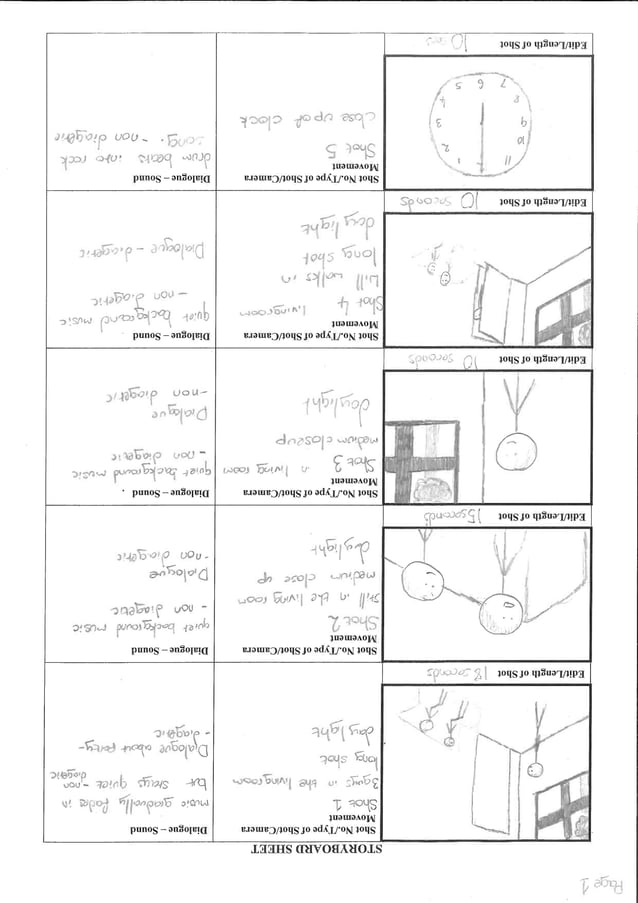 Page 1
STORYBOARD SHEET
Shot No./Type of Shot/Camera
Movement
Shot 1
3 guys in the livingroom
long shot
daylight
Dialogue – Sound
music gradually fades in
but stays quite -non
diagetic
Dialogue about party-
- diagetic
Edit/Length of Shot 18 seconds
Shot No./Type of Shot/Camera
Movement
Shot 2
still in the living room
medium close up
daylight
Dialogue – Sound
quiet background music
- non diagetic
Dialogue
-non diagetic
Edit/Length of Shot 15 seconds
Shot No./Type of Shot/Camera
Movement
Shot 3 in living room
medium closeup
daylight
Dialogue – Sound
quiet background music
- non diagetic
Dialogue
-non diagetic
Edit/Length of Shot 10 seconds
Shot No./Type of Shot/Camera
Movement
Shot 4 livingroom
will walks in
long shot
daylight
Dialogue – Sound
quiet background music
- non diagetic
Dialogue - diagetic
Edit/Length of Shot 10 seconds
Shot No./Type of Shot/Camera
Movement
Shot 5
close up of clock
Dialogue – Sound
drum beats into rock
song. - non diagetic
11
1
10
2
9
3
8
4
7
6
5
Edit/Length of Shot 10 secs